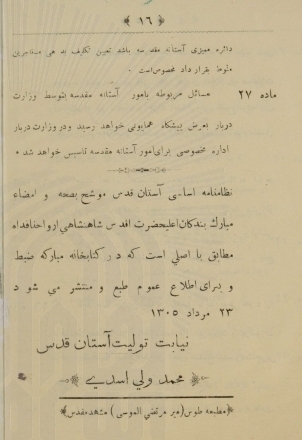 ﴿ ۱۶ ﴾
دائره ممیزی آستانه مقدسه باشد تعیین تکلیف بدهی مستاجرین
منوط بقرارداد مخصوص است ۰
ماده ۲۷ مسائل مربوطه بامور آستانه مقدسه بتوسط وزارت
دربار بعرض پیشگاه همایونی خواهد رسید و در وزارت دربار
اداره مخصوصی برای امور آستانه مقدسه تاسیس خواهد شد ۰
نظامنامه اساسی آستان قدس موشح بصحه و امضاء
مبارك بندکان اعلیحضرت اقدس شاهنشاهی ارواحنافداه
مطابق با اصلی است که در کتابخانه مبارکه ضبط
و برای اطلاع عموم طبع و منتشر می شود
۲۳ مرداد ۱۳۰۵
نیابت تولیت آستان قدس
محمد ولی اسدی
﴿مطبعه طوس (میر مرتضی الموسوی) مشهد مقدس﴾